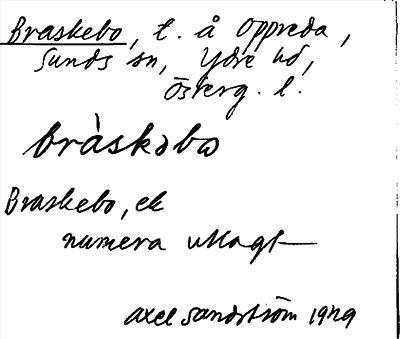 Braskebo, t. å Oppreda,
Sunds sn, Ydre hd,
Österg. l.
bràskəbω
Braskebo, ek
numera utlagt
Axel Sandström 1929